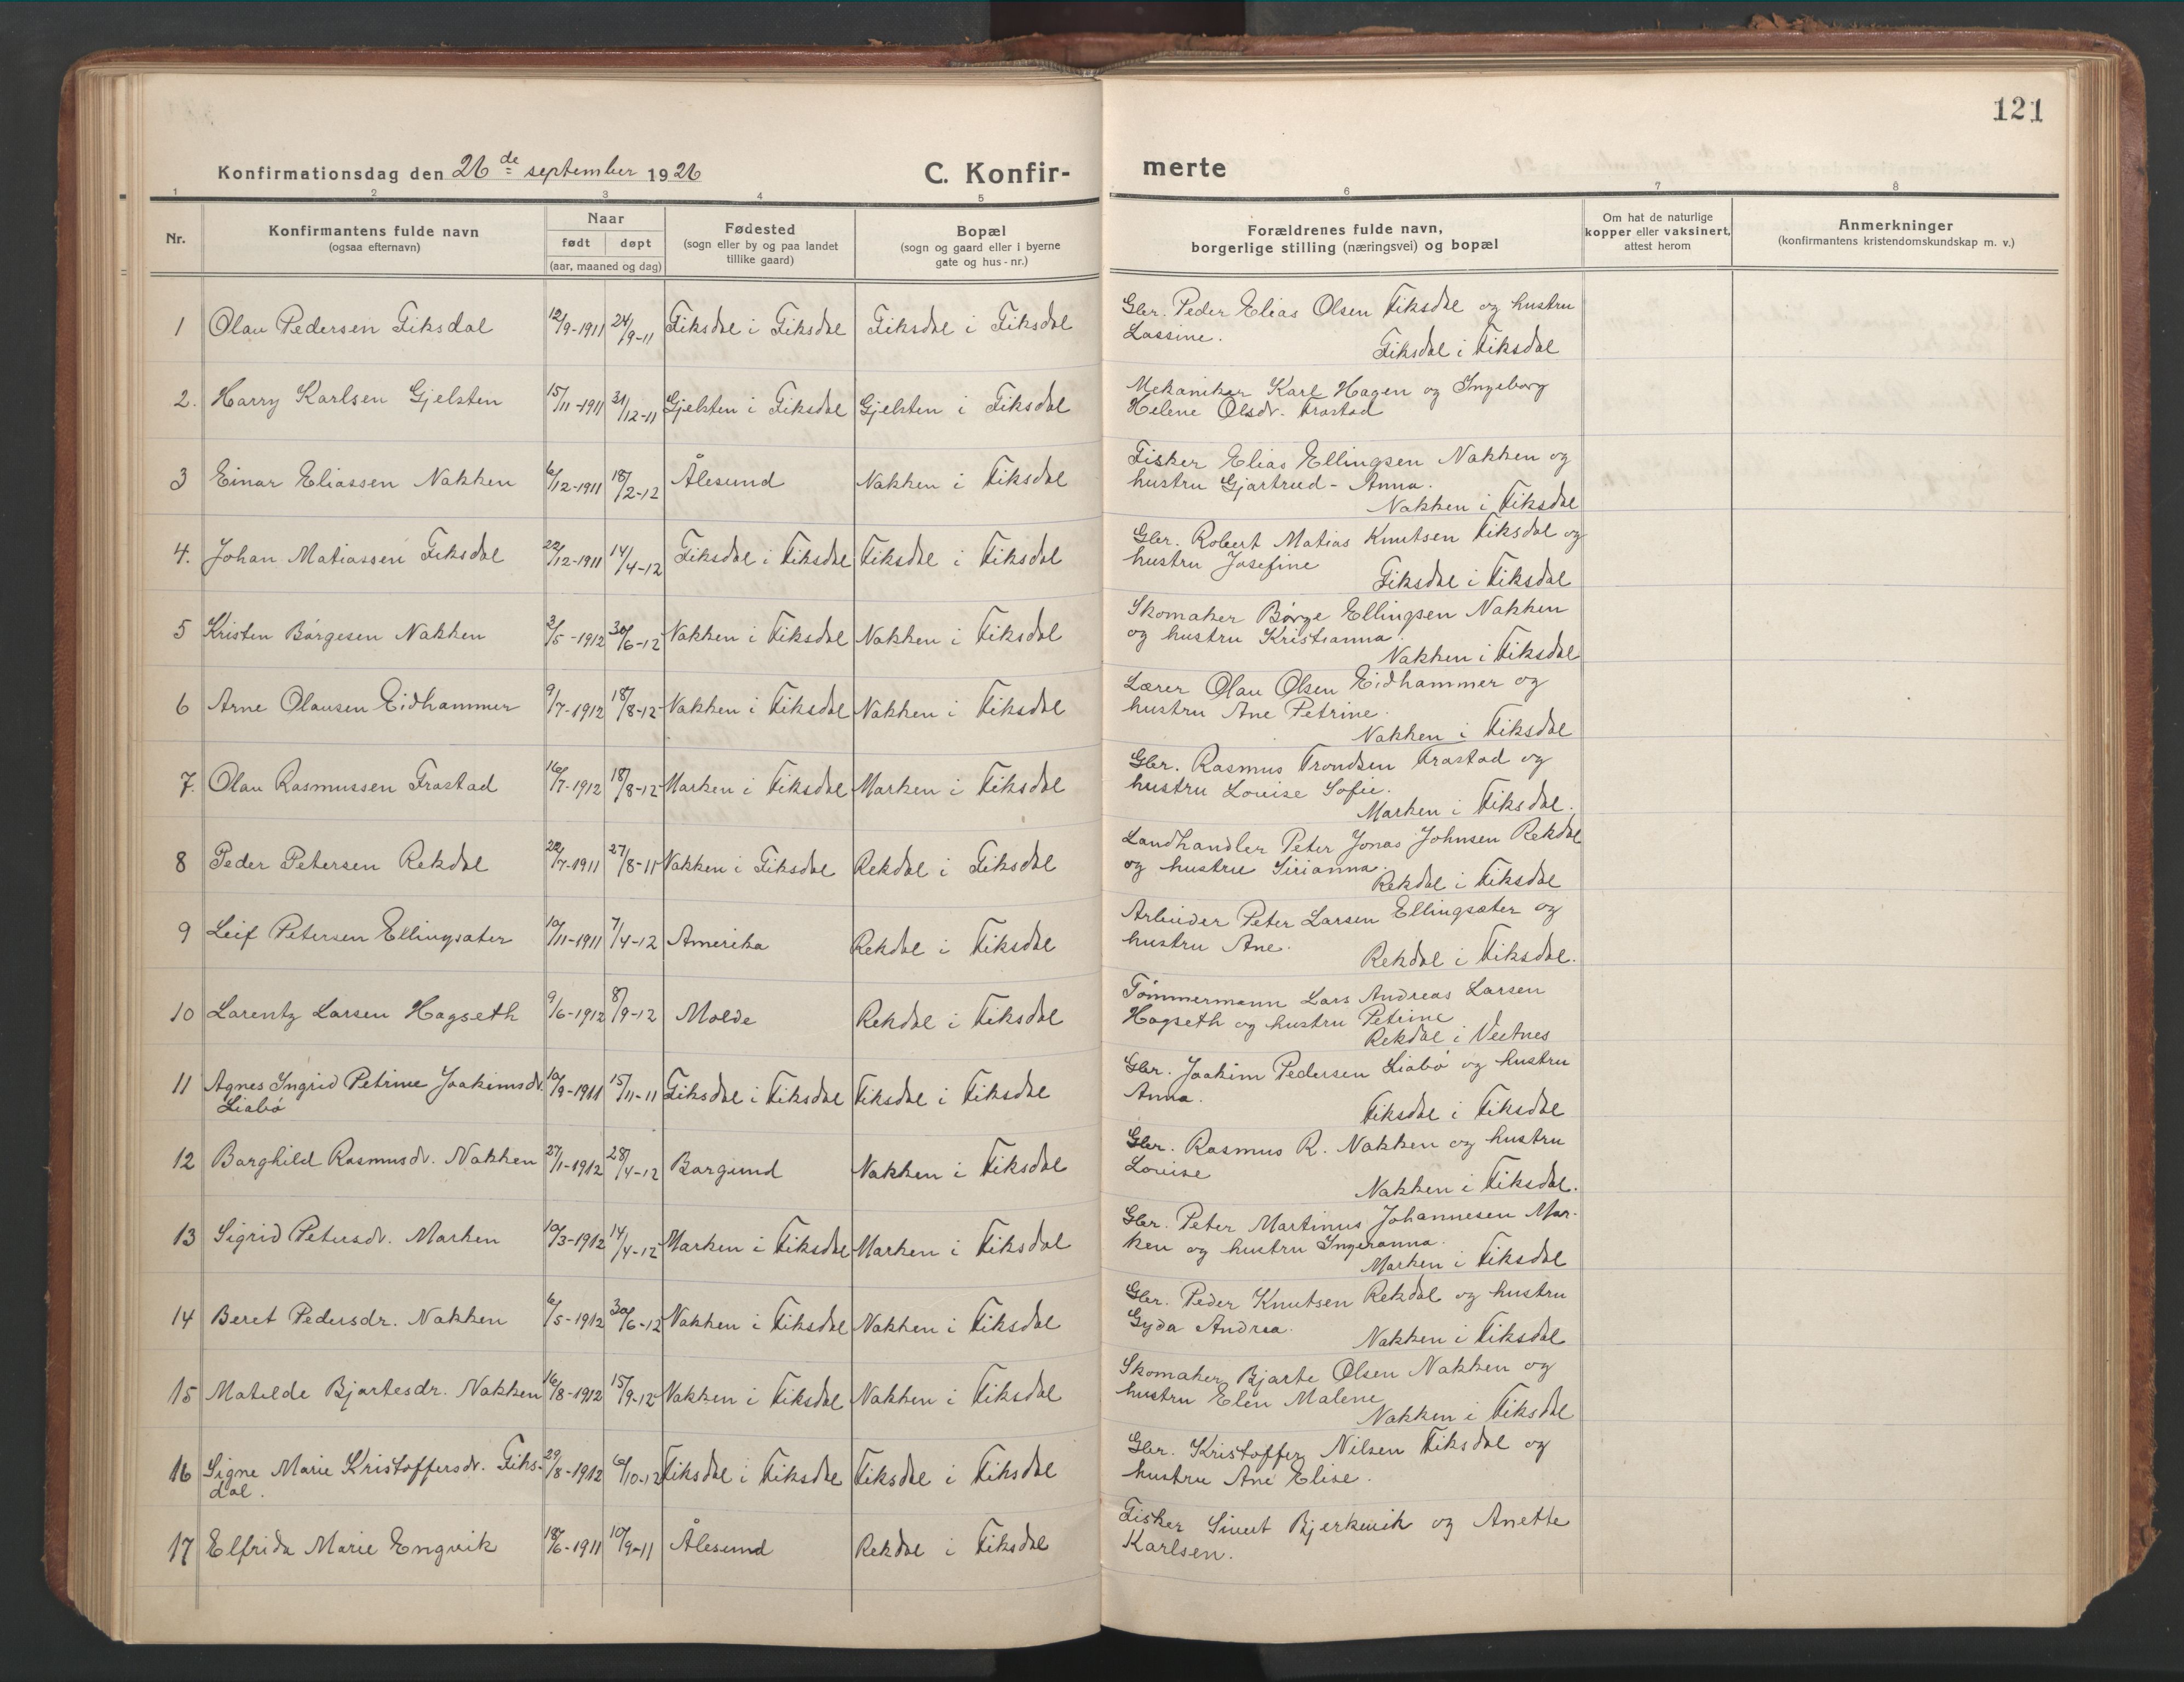 121
Konfirmationsdag den 26de september 1926
C. Konfir-
merte
1 2 3 4 5 6 7 8
Nr.
Konfirmantens fulde navn
(ogsaa efternavn)
Naar
født døpt
(aar, maaned og dag)
Fødested
(sogn eller by og paa landet
tillike gaard)
Bopæl
(sogn og gaard eller i byerne
gate og hus-nr.)
Forældrenes fulde navn,
borgerlige stilling (næringsvei) og bopæl
Om hat de naturlige
kopper eller vaksinert,
attest herom
Anmerkninger
(konfirmantens kristendomskundskap m. v.)
1 Olau Pedersen Fiksdal 12/9-1911 24/9-11 Fiksdal i Fiksdal Fiksdal i Fiksdal
Gbr. Peder Elias Olsen Fiksdal og hustru
Lassine.
Fiksdal i Fiksdal
2. Harry Karlsen Gjelsten 15/11-1911 31/12-11 Gjelsten i Fiksdal Gjelsten i Fiksdal
Mekaniker Karl Hagen og Ingeborg
Helene Olsdr. Frostad
3 Einar Eliassen Nakken 6/12-1911 18/2-12 Ålesund Nakken i Fiksdal
Fisker Elias Ellingsen Nakken og
hustru Gjartrud-Anna.
Nakken i Fiksdal
4. Johan Matiassen Fiksdal 22/12-1911 14/4-12 Fiksdal i Fiksdal Fiksdal i Fiksdal
Gbr. Robert Matias Knutsen Fiksdal og
hustru Josefine
Fiksdal i Fiksdal
5 Kristen Børgesen Nakken 3/5-1912 30/6-12 Nakken i Fiksdal Nakken i Fiksdal
Skomaker Børge Ellingsen Nakken
og hustru Kristianna.
Nakken i Fiksdal
6 Arne Olausen Eidhammer 9/7-1912 18/8-12 Nakken i Fiksdal Nakken i Fiksdal
Lærer Olau Olsen Eidhammer og
hustru Ane Petrine.
Nakken i Fiksdal
7. Olau Rasmussen Frostad 16/7-1912 18/8-12 Marken i Fiksdal Marken i Fiksdal
Gbr. Rasmus Trondsen Frostad og
hustru Louise Sofie.
Marken i Fiksdal.
8 Peder Petersen Rekdal 22/7-1911 27/8-11 Nakken i Fiksdal Rekdal i Fiksdal
Landhandler Peter Jonas Johnsen Rekdal
og hustru Sirianna.
Rekdal i Fiksdal
9 Leif Petersen Ellingsæter 10/11-1911 7/4-12 Amerika Rekdal i Fiksdal
Arbeider Peter Larsen Ellingsæter og
hustru Ane.
Rekdal i Fiksdal.
10 Larentz Larsen Hagseth 9/6-1912 8/9-12 Molde Rekdal i Fiksdal
Tømmermann Lars Andreas Larsen
Hagseth og hustru Petrine
Rekdal i Vestnes
11 Agnes Ingrid Petrine Joakimsdr. 10/9-1911 15/11-11 Fiksdal i Fiksdal Fiksdal i Fiksdal
Liabø
Gbr. Joakim Pedersen Liabø og hustru
Anna.
Fiksdal i Fiksdal
12 Borghild Rasmusdr. Nakken 27/1-1912 28/4-12 Borgund Nakken i Fiksdal
Gbr. Rasmus R. Nakken og hustru
Louise
Nakken i Fiksdal.
13 Sigrid Petersdr. Marken 10/3-1912 14/4-12 Marken i Fiksdal Marken i Fiksdal
Gbr. Peter Martinus Johannesen Mar-
ken og hustru Ingeranna.
Marken i Fiksdal
14 Beret Pedersdr. Nakken 6/5-1912 30/6-12 Nakken i Fiksdal Nakken i Fiksdal
Gbr. Peder Knutsen Rekdal og hustru
Gyda Andrea.
Nakken i Fiksdal
15 Matilde Bjartesdr. Nakken 16/8-1912 15/9-12 Nakken i Fiksdal Nakken i Fiksdal
Skomaker Bjarte Olsen Nakken og
hustru Elen Malene
Nakken i Fiksdal
16 Signe Marie Kristoffersdr. Fiks- 29/8-1912 6/10-12 Fiksdal i Fiksdal Fiksdal i Fiksdal
dal.
Gbr. Kristoffer Nilsen Fiksdal og
hustru Ane Elise.
17 Elfrida Marie Engvik 18/6-1911 10/9-11 Ålesund Rekdal i Fiksdal
Fisker Sivert Bjerkevik og Anette
Karlsen.